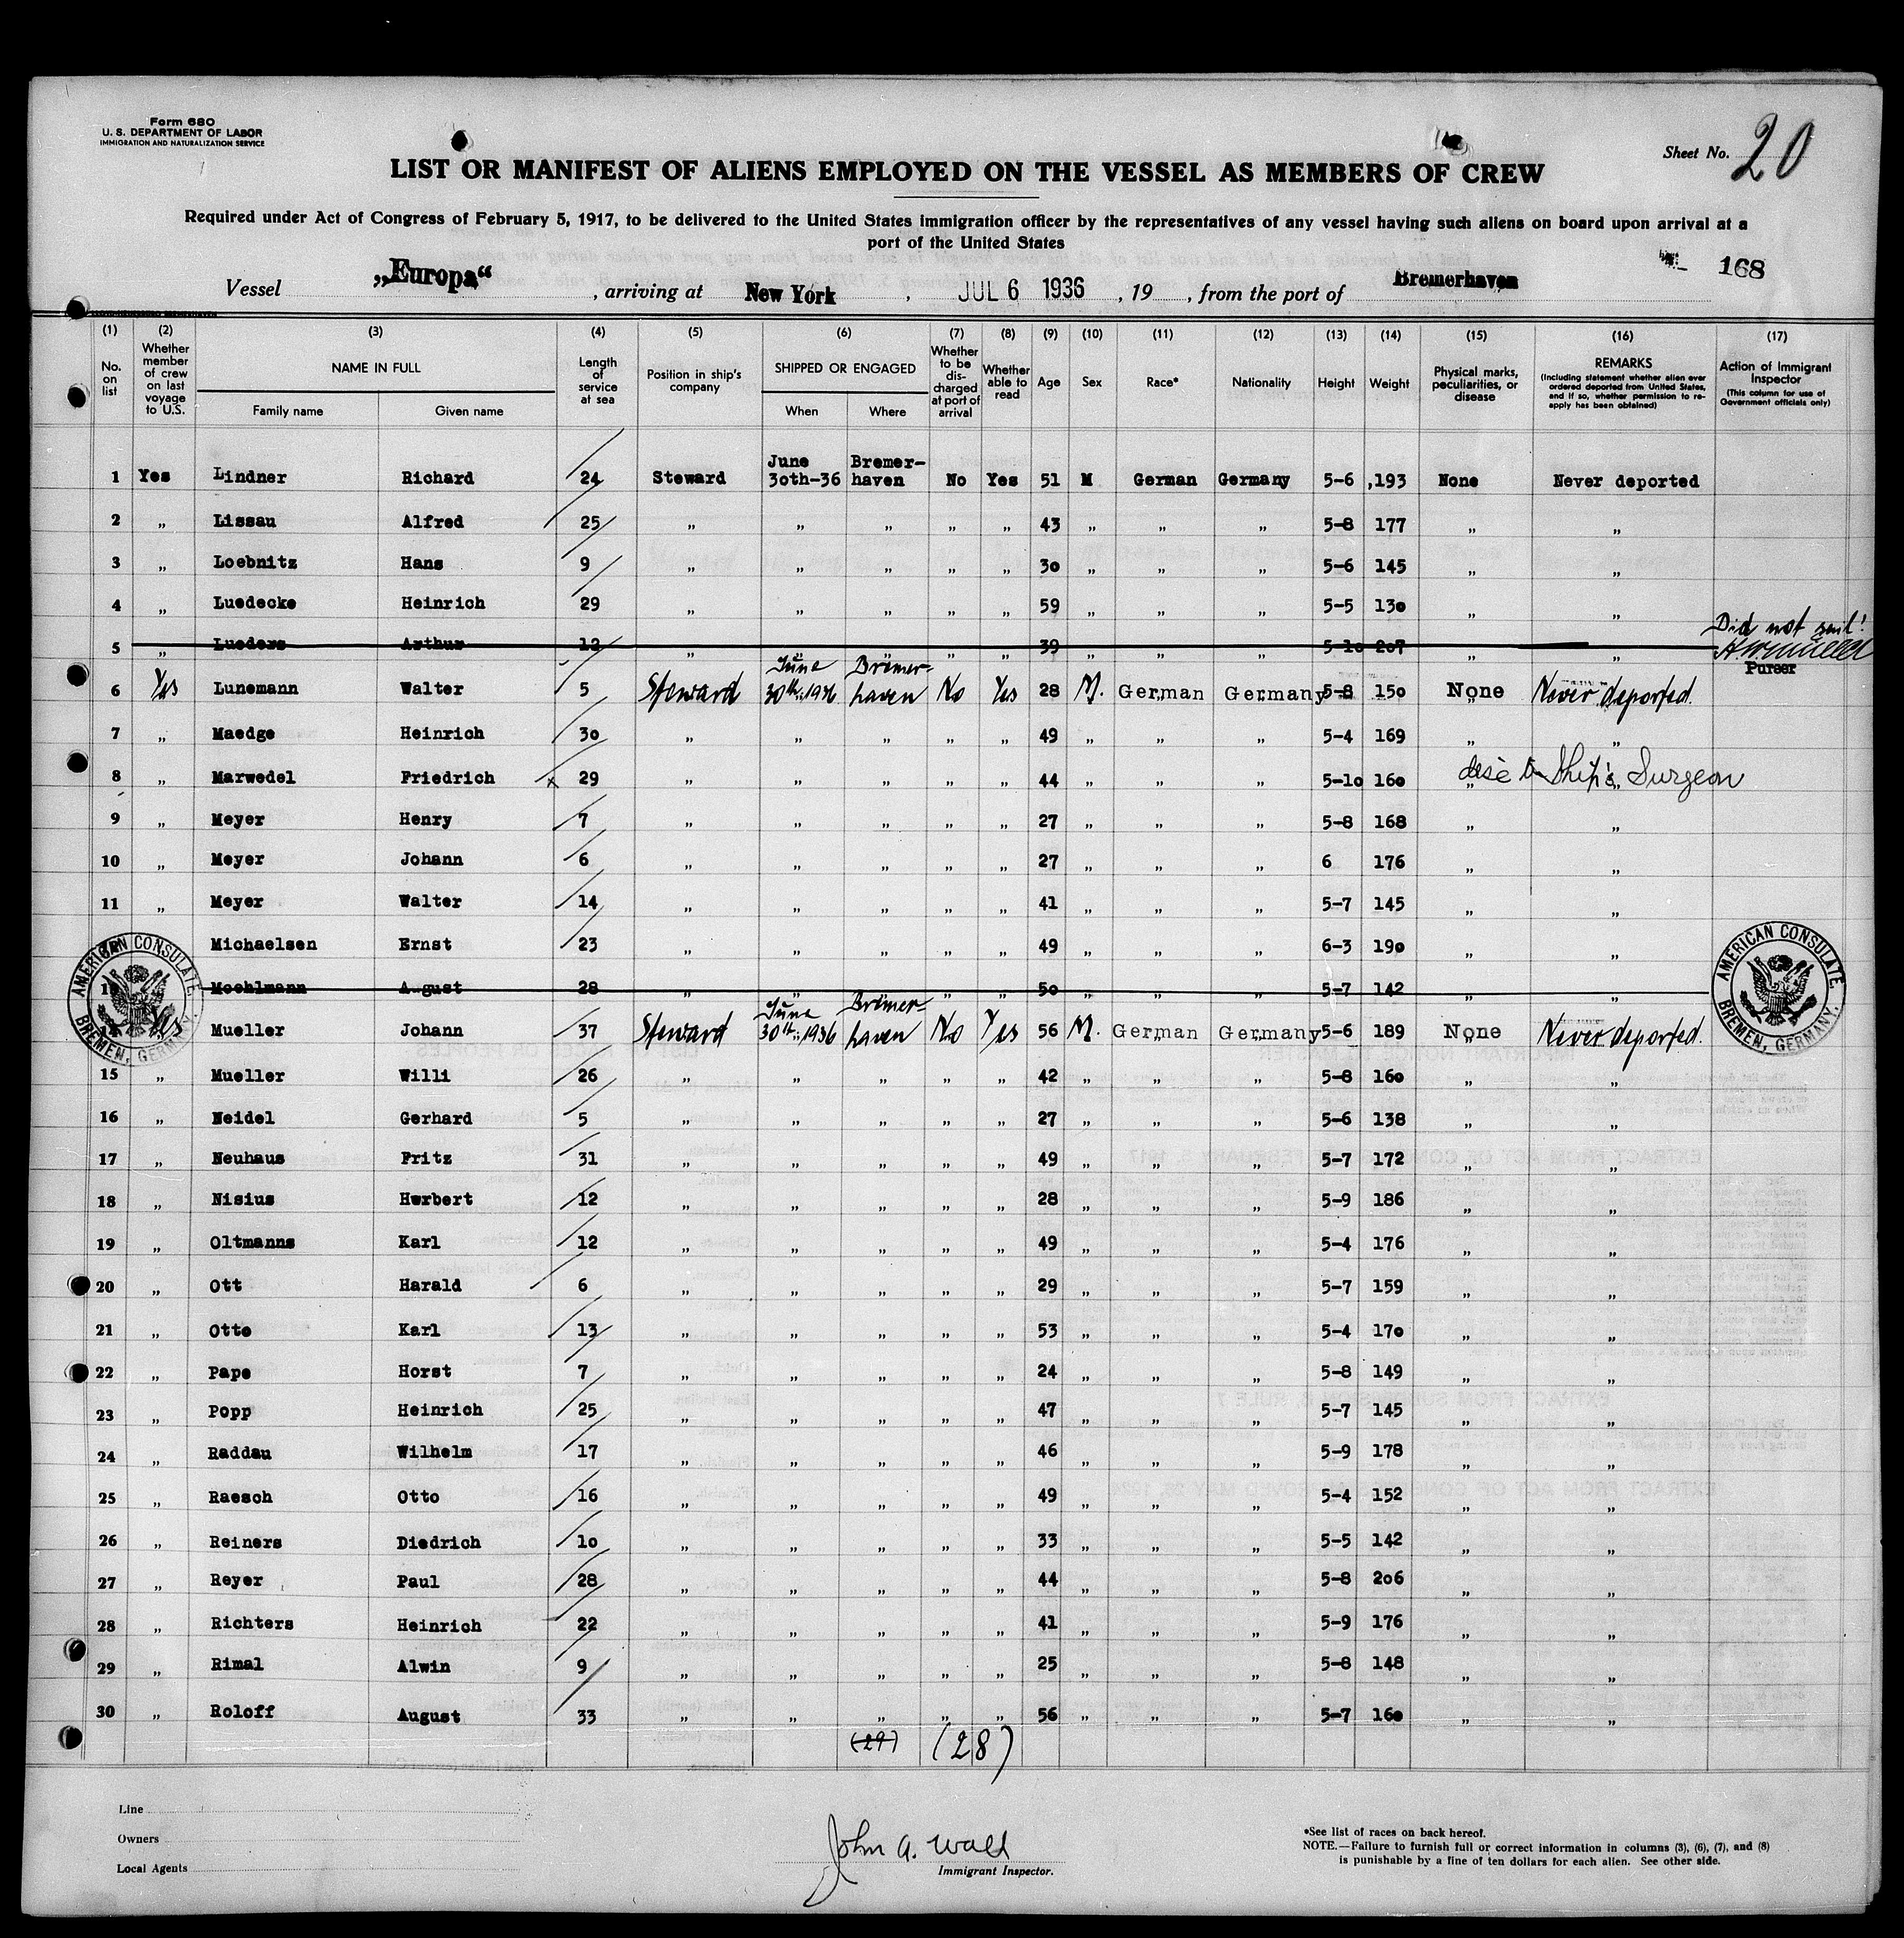 Form 680
U. S. DEPARTMENT OF LABOR
IMMIGRATION AND NATURALIZATION SERVICE
Sheet No. 20
LIST OR MANIFEST OF ALIENS EMPLOYED ON THE VESSEL AS MEMBERS OF CREW
Required under Act of Congress of February 5, 1917, to be delivered to the United States immigration officer by the representatives of any vessel having such aliens on board upon arrival at a
port of the United States
168
Vessel „Europa“, arriving at New York, JUL 6 1936, 19 , from the port of Bremerhaven
(1) (2) (3) (4) (5) (6) (7) (8) (9) (10) (11) (12) (13) (14) (15) (16) (17)
No. on list
Whether member of crew on last voyage to U.S.
NAME IN FULL
Family name Given name
Length of service at sea
Position in ship's company
SHIPPED OR ENGAGED
When Where
Whether to be discharged at port of arrival
Whether able to read
Age
Sex
Race*
Nationality
Height
Weight
Physical marks, peculiarities, or disease
REMARKS
(Including statement whether alien ever ordered deported from United States, and if so, whether permission to re-apply has been obtained)
Action of Immigrant Inspector
(This column for use of Government officials only)
1 Yes Lindner Richard 24 Steward June 30th-36 Bremer-haven No Yes 51 M German Germany 5-6 ,193 None Never deported
2 „ Lissau Alfred 25 „ „ „ „ „ 43 „ „ „ 5-8 177 „ „
3 „ Loebnitz Hans 9 „ „ „ „ „ 30 „ „ „ 5-6 145 „ „
4 „ Luedecke Heinrich 29 „ „ „ „ „ 59 „ „ „ 5-5 130 „ „
5 „ Lueders Arthur 12 „ „ „ „ „ 39 „ „ „ 5-10 207 „ „ Did not sail!
Purser
6 Yes Lunemann Walter 5 Steward June 30th, 1936 Bremer-haven No Yes 28 M. German Germany 5-8 150 None Never deported.
7 „ Maedge Heinrich 30 „ „ „ „ „ 49 „ „ „ 5-4 169 „ „
8 „ Marwedel Friedrich x 29 „ „ „ „ „ 44 „ „ „ 5-10 160 „ „ Ship's Surgeon
9 „ Meyer Henry 7 „ „ „ „ „ 27 „ „ „ 5-8 168 „ „
10 „ Meyer Johann 6 „ „ „ „ „ 27 „ „ „ 6 176 „ „
11 „ Meyer Walter 14 „ „ „ „ „ 41 „ „ „ 5-7 145 „ „
Michaelsen Ernst 23 „ „ „ „ „ 49 „ „ „ 6-3 190 „ „
Moehlmann August 28 „ „ „ „ „ 50 „ „ „ 5-7 142 „ „
Yes Mueller Johann 37 Steward June 30th, 1936 Bremer-haven No Yes 56 M. German Germany 5-6 189 None Never deported.
AMERICAN CONSULATE. BREMEN, GERMANY.
AMERICAN CONSULATE. BREMEN, GERMANY.
15 „ Mueller Willi 26 „ „ „ „ „ 42 „ „ „ 5-8 160 „ „
16 „ Neidel Gerhard 5 „ „ „ „ „ 27 „ „ „ 5-6 138 „ „
17 „ Neuhaus Fritz 31 „ „ „ „ „ 49 „ „ „ 5-7 172 „ „
18 „ Nisius Herbert 12 „ „ „ „ „ 28 „ „ „ 5-9 186 „ „
19 „ Oltmanns Karl 12 „ „ „ „ „ 49 „ „ „ 5-4 176 „ „
20 „ Ott Harald 6 „ „ „ „ „ 29 „ „ „ 5-7 159 „ „
21 „ Otto Karl 13 „ „ „ „ „ 53 „ „ „ 5-4 170 „ „
22 „ Pape Horst 7 „ „ „ „ „ 24 „ „ „ 5-8 149 „ „
23 „ Popp Heinrich 25 „ „ „ „ „ 47 „ „ „ 5-7 145 „ „
24 „ Raddau Wilhelm 17 „ „ „ „ „ 46 „ „ „ 5-9 178 „ „
25 „ Raesch Otto 16 „ „ „ „ „ 49 „ „ „ 5-4 152 „ „
26 „ Reiners Diedrich 10 „ „ „ „ „ 33 „ „ „ 5-5 142 „ „
27 „ Reyer Paul 28 „ „ „ „ „ 44 „ „ „ 5-8 206 „ „
28 „ Richters Heinrich 22 „ „ „ „ „ 41 „ „ „ 5-9 176 „ „
29 „ Rimal Alwin 9 „ „ „ „ „ 25 „ „ „ 5-8 148 „ „
30 „ Roloff August 33 „ „ „ „ „ 56 „ „ „ 5-7 160 „ „
(29) (28)
Line
Owners
Local Agents
John A. Wald
Immigrant Inspector.
*See list of races on back hereof.
NOTE.—Failure to furnish full or correct information in columns (3), (6), (7), and (8)
is punishable by a fine of ten dollars for each alien. See other side.